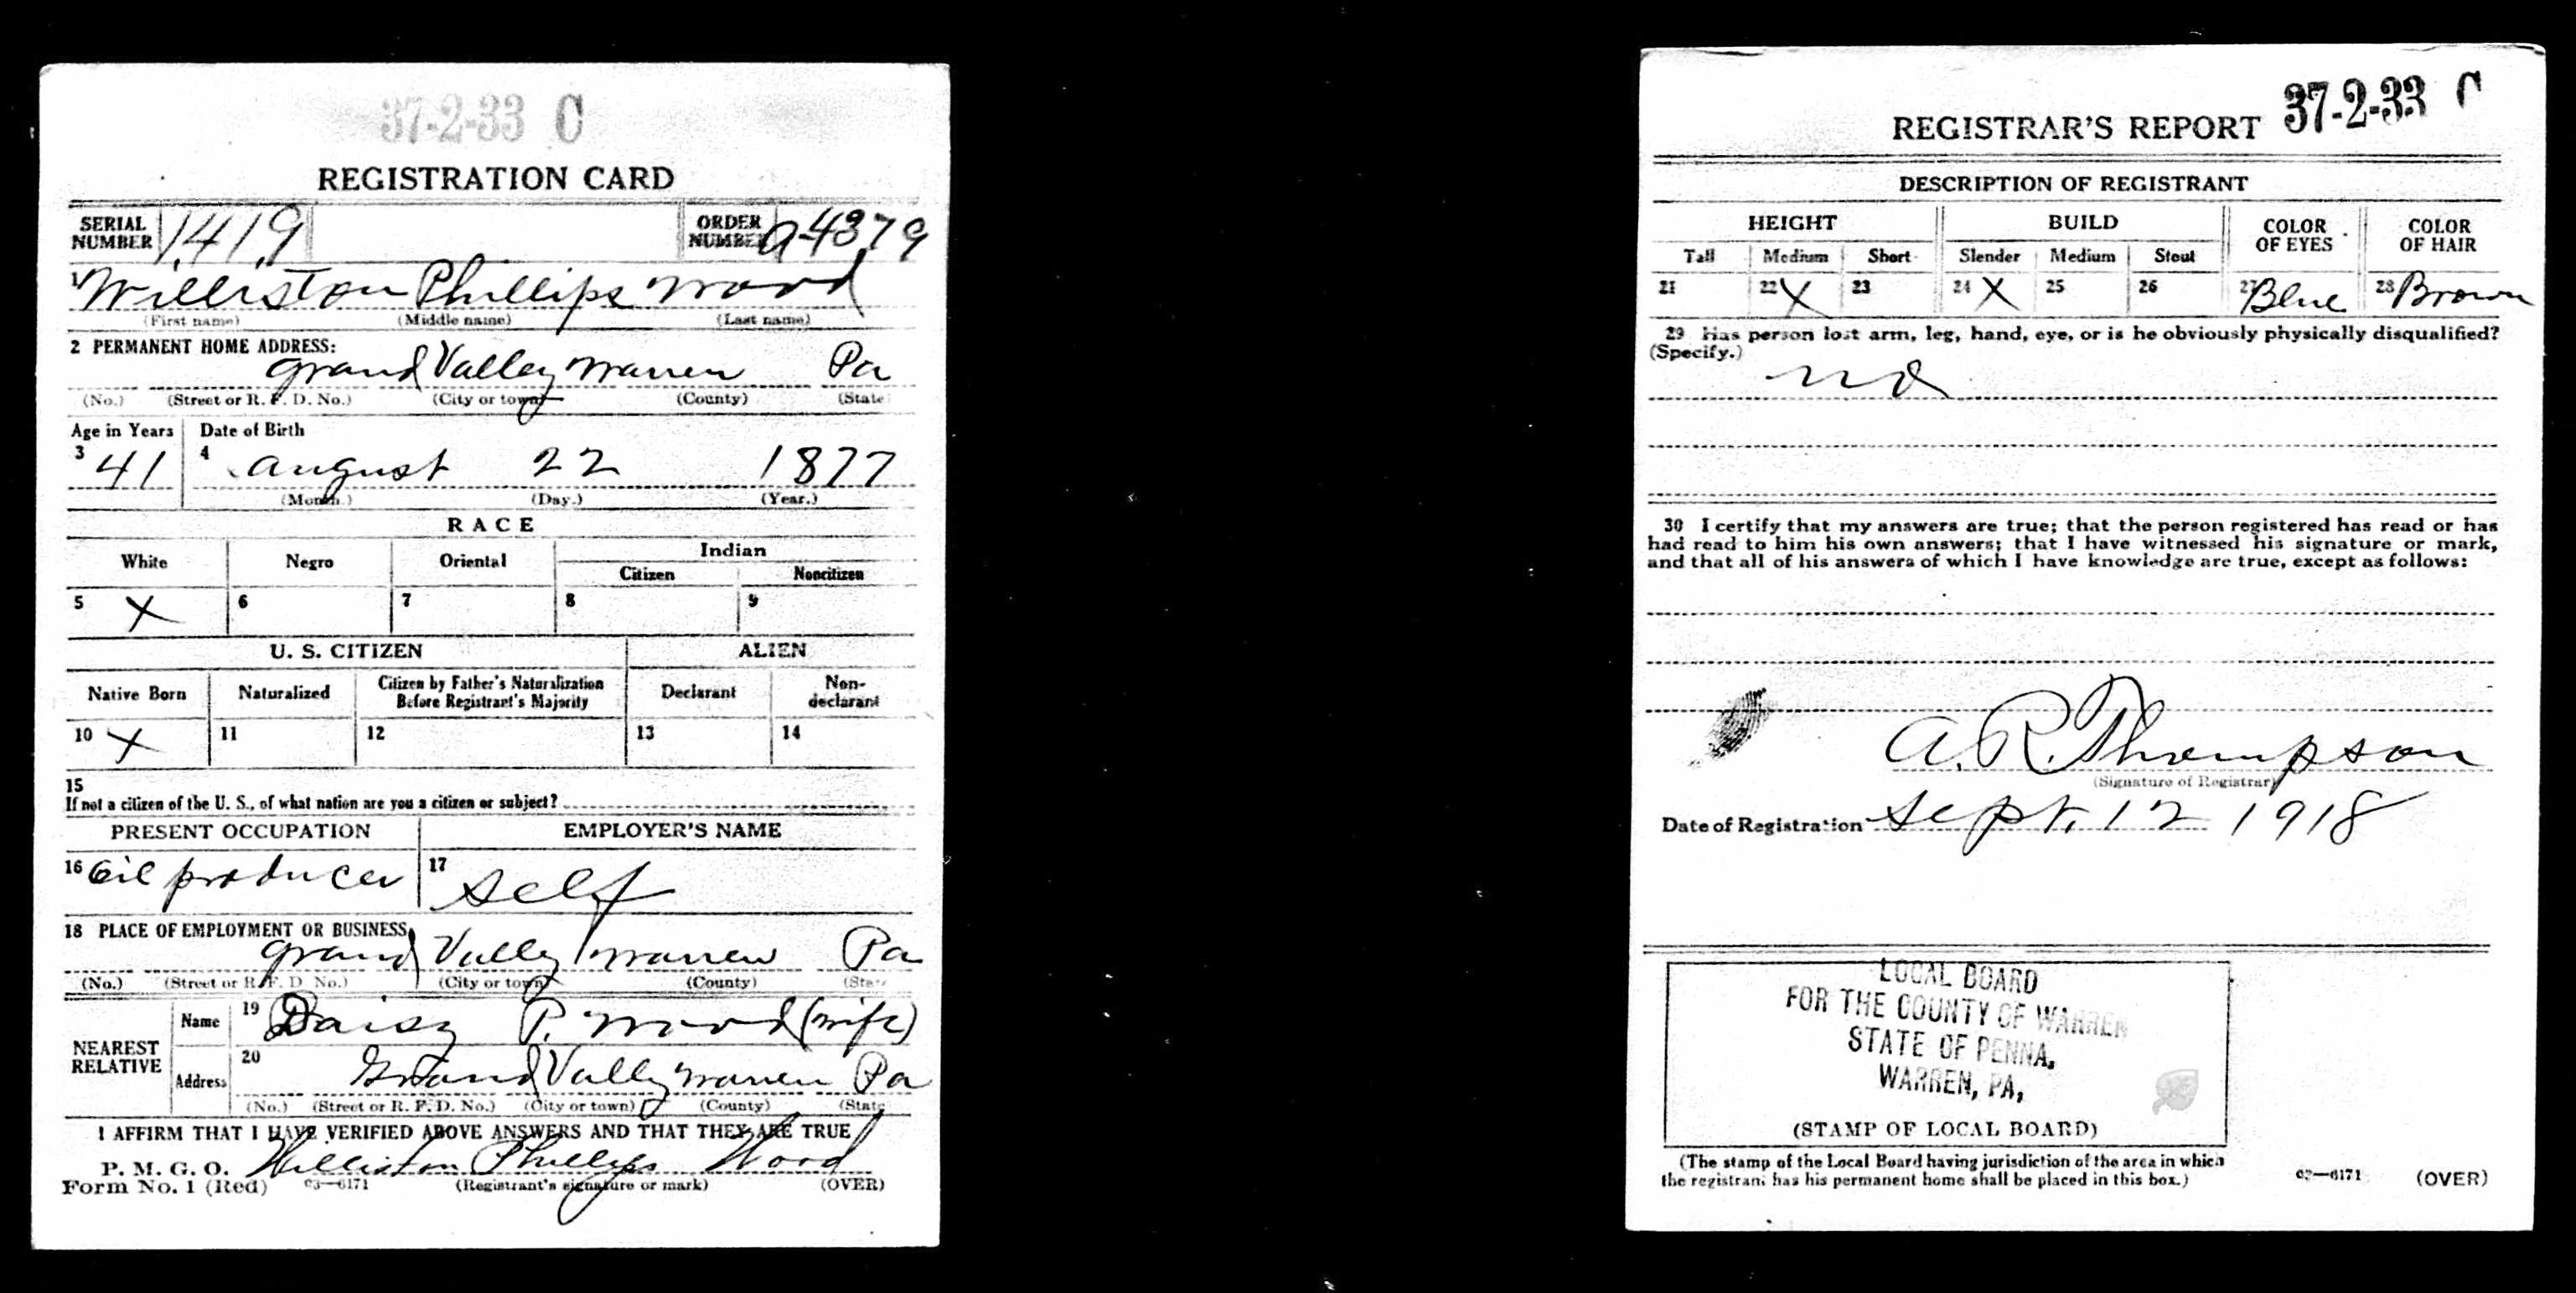 37-2-33 C
REGISTRATION CARD
SERIAL NUMBER 1419 ORDER NUMBER A4379
1 Williston Phillips Wood
(First name) (Middle name) (Last name)
2 PERMANENT HOME ADDRESS:
Grand Valley Warren Pa
(No.) (Street or R. F. D. No.) (City or town) (County) (State
Age in Years Date of Birth
3 41 4 August 22 1877
(Month.) (Day.) (Year.)
RACE
White Negro Oriental Indian
Citizen Noncitizen
5 X 6 7 8 9
U. S. CITIZEN ALIEN
Native Born Naturalized Citizen by Father's Naturalization Before Registrant's Majority Declarant Non-declarant
10 X 11 12 13 14
15
If not a citizen of the U. S., of what nation are you a citizen or subject?
PRESENT OCCUPATION EMPLOYER'S NAME
16 Oil producer 17 self
18 PLACE OF EMPLOYMENT OR BUSINESS
Grand Valley Warren Pa
(No.) (Street or R. F. D No.) (City or town) (County) (State
NEAREST RELATIVE
Name 19 Daisy P. Wood (wife)
Address 20 Grand Valley Warren Pa
(No.) (Street or R. F. D. No.) (City or town) (County) (State
I AFFIRM THAT I HAVE VERIFIED ABOVE ANSWERS AND THAT THEY ARE TRUE
P. M. G. O. Williston Phillips Wood
Form No. 1 (Red) 03—6171 (Registrant's signature or mark) (OVER)
37-2-33 C
REGISTRAR'S REPORT
DESCRIPTION OF REGISTRANT
HEIGHT BUILD COLOR OF EYES COLOR OF HAIR
Tall Medium Short Slender Medium Stout
21 22 X 23 24 X 25 26 27 Blue 28 Brown
29 Has person lost arm, leg, hand, eye, or is he obviously physically disqualified?
(Specify.)
no
30 I certify that my answers are true; that the person registered has read or has
had read to him his own answers; that I have witnessed his signature or mark,
and that all of his answers of which I have knowledge are true, except as follows:
A. R. Thompson
(Signature of Registrar)
Date of Registration Sept. 12 1918
LOCAL BOARD
FOR THE COUNTY OF WARREN
STATE OF PENNA.
WARREN, PA,
(STAMP OF LOCAL BOARD)
(The stamp of the Local Board having jurisdiction of the area in which
the registrant has his permanent home shall be placed in this box.)
03—6171 (OVER)